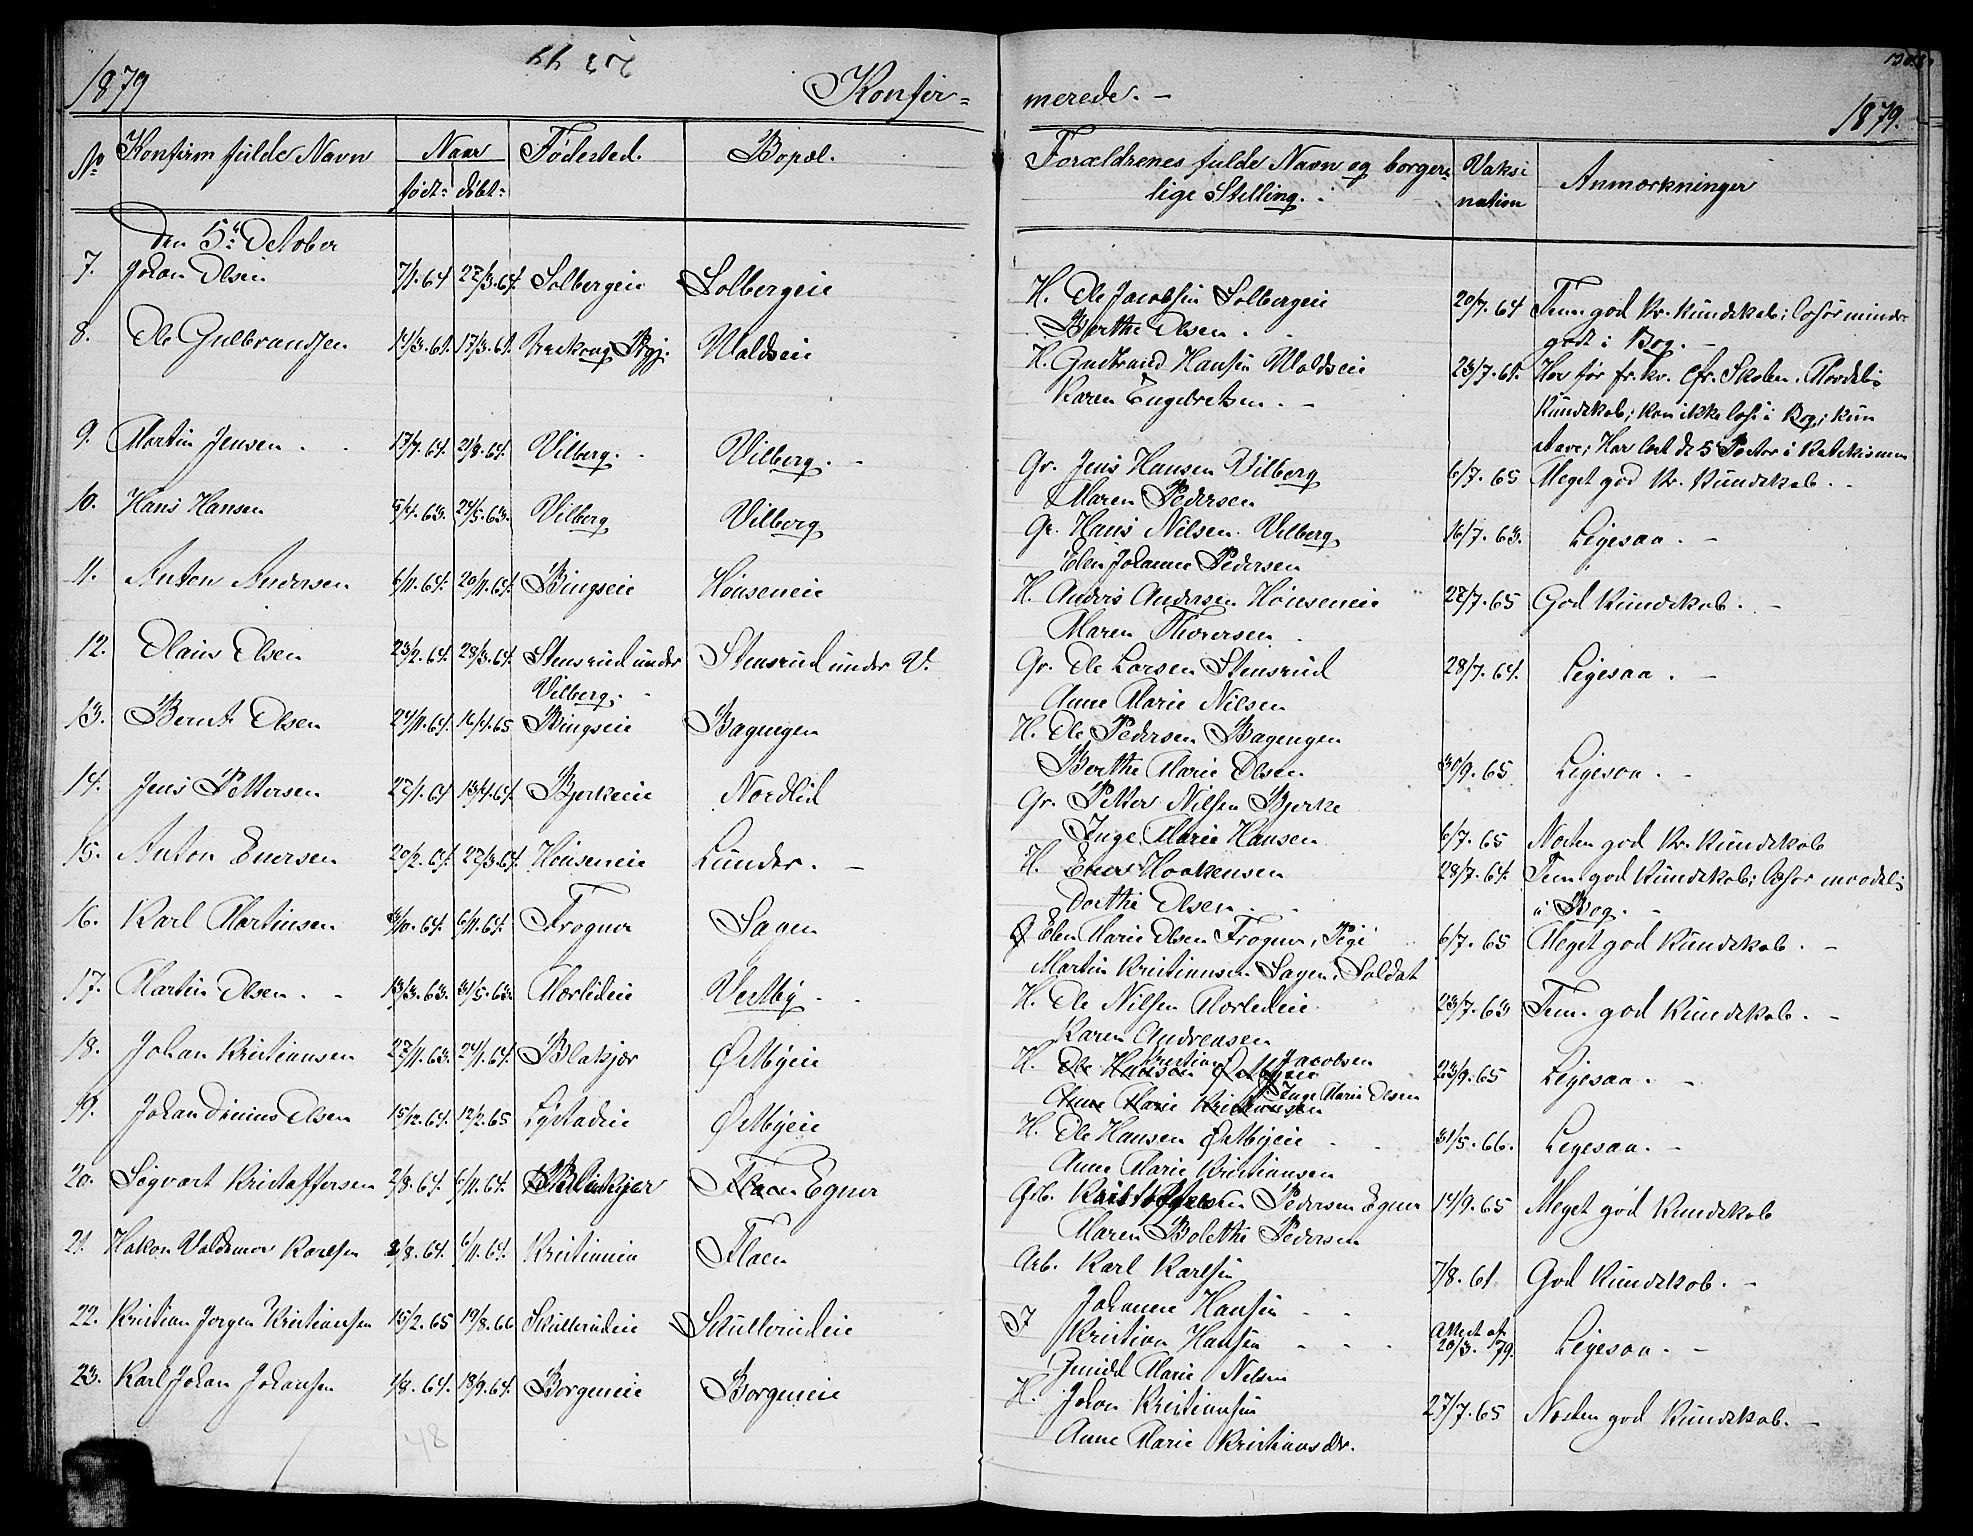 1879
Konfir-
merede. -
1879.
No Konfirm fulde Navn Naar Fødested. Bopæl. Forældrenes fulde Navn og borger- Vaksi Anmærkninger
født- döbt- lige Stilling. nation
Den 5te October
7. Johan Olsen 7/1.64 27/3.64. Solbergeie Solbergeie H. Ole Jacobsen Solbergeie 20/7.64 Tem. god Kr. Kundskab; læser mindre
Berthe Olsen. godt i Bog. -
8. Ole Gulbrandsen 14/3.64. 17/3.64. Moldseie H. Gudbrand Hansen Moldseie 23/7.64. Har før fr. kv. Skolen. Maadel:
Karen Engebretsen. - Kundskab; kan ikke læse i Bog; kun
stave; Har lært de 5 Parter i Katekismen
9. Martin Jensen. 17/7.64. 21/8.64. Vilberg. Vilberg. - Gr. Jens Hansen Vilberg 6/7.65 Meget god Kr. Kundskab. -
Maren Pedersen
10. Hans Hansen 5/4.63. 24/5.63. Vilberg Vilberg Gr. Hans Nilsen Vilberg 16/7.63. Ligesaa. -
Elen Johanne Pedersen
11. Anton Andersen 6/11.64. 20/11.64. Bingseie Hönseneie H. Anders Andersen Hönseneie 27/7.65 God Kundskab. -
Maren Thoresen
12. Olaus Olsen 23/2.64. 28/3.64. Stensrud under Stensrud under V. Gr. Ole Larsen Stensrud 28/7.64. Ligesaa. -
Vilberg. Anne Marie Nilsen
13. Bernt Olsen 24/11.64. 16/4.65 Bingseie Bagengen H. Ole Pedersen Bagengen
Berthe Marie Olsen 30/9.65 Ligesaa. -
14. Jens Pettersen 27/1.64 13/4.64. Bjerkeie Nordlid Gr. Petter Nilsen Bjerke
Inge Marie Hansen 6/7.65 Næsten god Kr. Kundskab
15. Anton Enersen 20/2.64. 27/3.64. Hönseneie Lunder. - H. Ener Haakensen 28/7.64. Tem. god Kundskab; læser maadel:
Dorthe Olsen i Bog. -
16. Karl Martinsen 3/10.64. 6/11.64. Frogner Sagen Elen Marie Olsen Frogner, Pige 6/7.65 Meget god Kundskab. -
Martin Kristiansen Sagen, Soldat
17. Martin Olsen. 13/3.63. 31/5.63. Mærlideie Vestby H. Ole Nilsen Mærlideie 23/7.63 Tem. god Kundskab. -
Karen Andreasen
18. Johan Kristiansen 27/11.63. 24/1.64. Blakjær Østbyeie H. Kristian Jacobsen 23/9.65 Ligesaa. -
Inge Marie Olsen
19. Johan Dinius Olsen 15/12.64. 12/2.65 Lystadeie Østbyeie H. Ole Hansen Østbyeie 31/5.66. Ligesaa. -
Anne Marie Kristiansen
20. Sigvart Kristoffersen 2/8.64. 6/11.64. Egner Grb. Pedersen Egner 14/9.65 Meget god Kundskab
Maren Bolette Pedersen
21. Hakon Valdemar Karlsen 2/8.64. 6/11.64. Kristiania Flaen Arb. Karl Karlsen 7/8.61 God Kundskab. -
Johanne Hansen
22. Kristian Jørgen Kristiansen 15/2.65 19/8.66 Skullerudeie Skullerudeie I Kristian Hansen Attest af 20/3.79. Ligesaa. -
Marie Nilsen
23. Karl Johan Johansen 1/8.64. 18/9.64. Borgeneie Borgeneie H. Johan Kristiansen 27/7.65 Næsten god Kundskab. -
Anne Marie Kristiansdr.
48